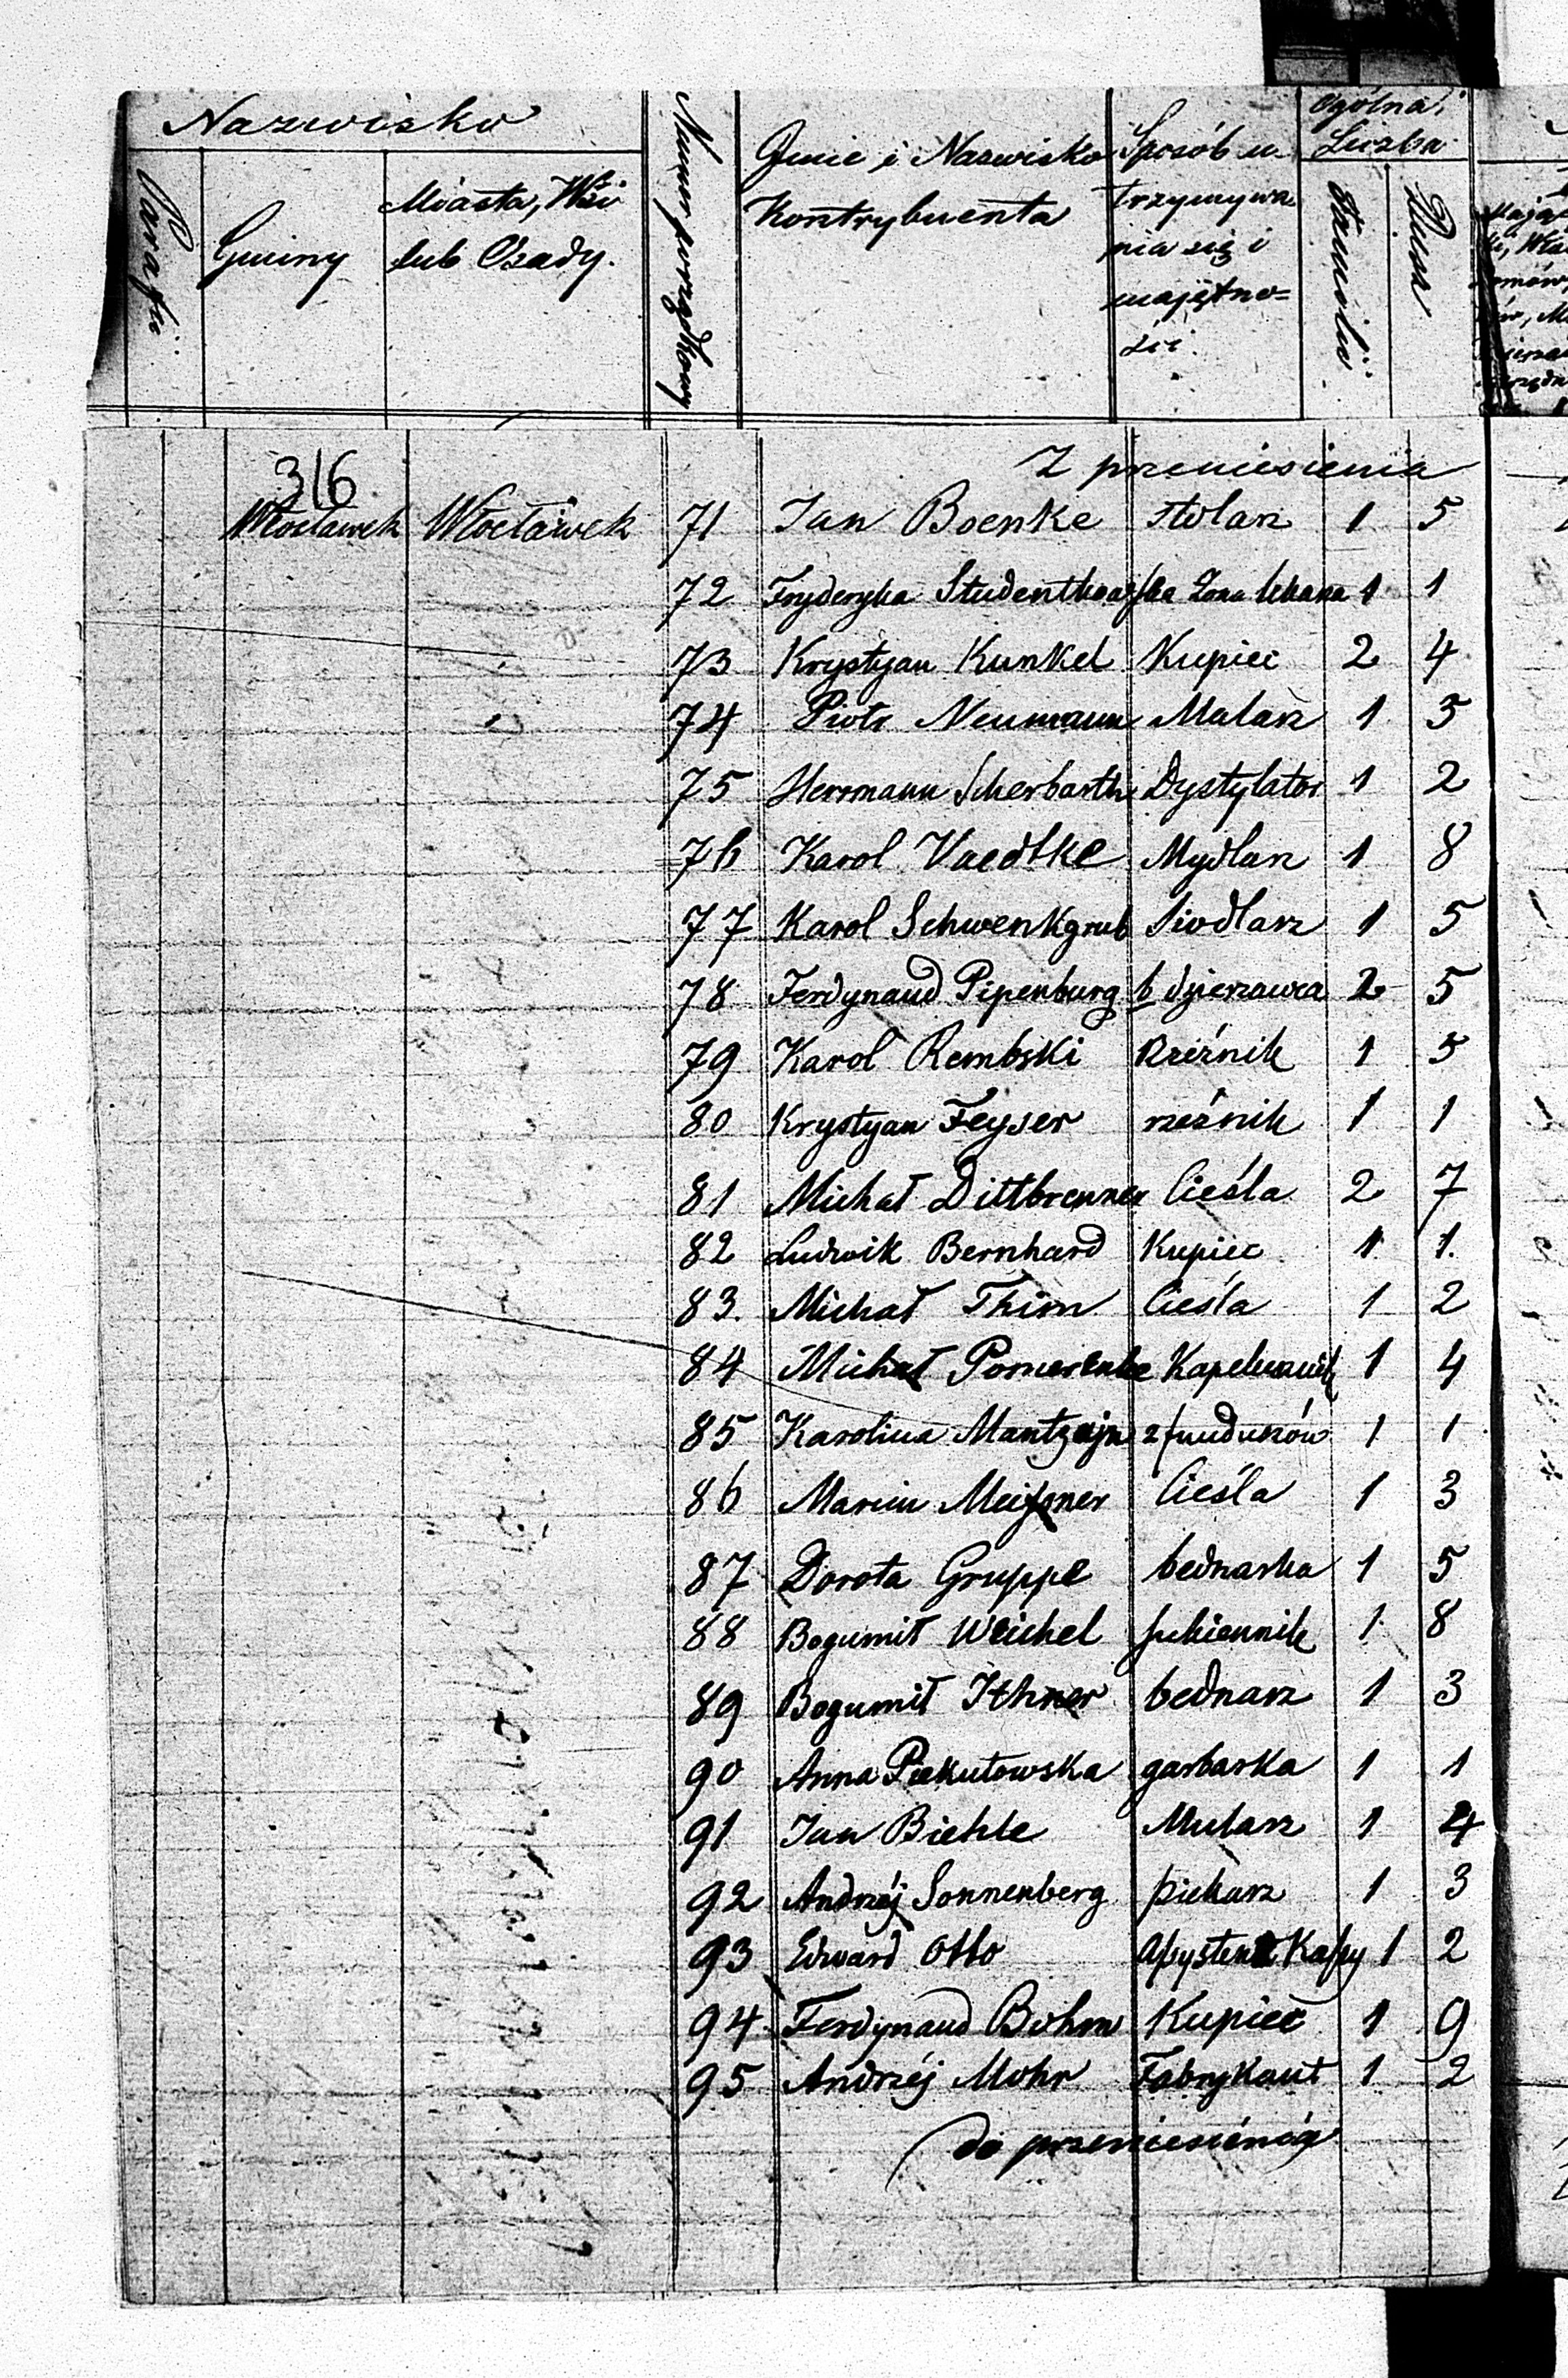 Nazwisko
Parafii
Gminy
Miasta, Wsi
lub Osady.
Numer porządkowy
Imie i Nazwisko
Kontrybuenta
Sposób u
trzymywa
nia się i
majętno=
ści.
Ogólna
Liczba
Familii
Dusz
316
Z przeniesienia
Włocławek Włocławek 71 Jan Boenke stolarz 1 5
72 Fryderyka Studentkowska Żona lekarza 1 1
73 Krystyan Kunkel Kupiec 2 4
74 Piotr Neumann Malarz 1 3
75 Herrmann Scherbarth Dystylator 1 2
76 Karol Vaedtke Mydlarz 1 8
77 Karol Schwenkgrub Siodlarz 1 5
78 Ferdynand Pipenburg b dzierzawca 2 5
79 Karol Rembski Rzeźnik 1 5
80 Krystyan Feyser rzeźnik 1 1
81 Michał Dittbrenner Cieśla 2 7
82 Ludwik Bernhard Kupiec 1 1.
83. Michał Thim Cieśla 1 2
84 Michał Pomerenke Kapelusznik 1 4
85 Karolina z funduszów 1 1
86 Marcin Meissner Cieśla 1 3
87 Dorota Gruppe bednarka 1 5
88 Bogumił Weichel sukiennik 1 8
89 Bogumił Ithner bednarz 1 3
90 Anna Piekutowska garbarka 1 1
91 Jan Biehle Mularz 1 4
92 Andrzéj Sonnenberg piekarz 1 3
93 Edward Otto assystent Kassy 1 2
94 Ferdynand Bohm Kupiec 1 9
95 Andrzéj Mohr Fabrykant 1 2
do przeniesienia